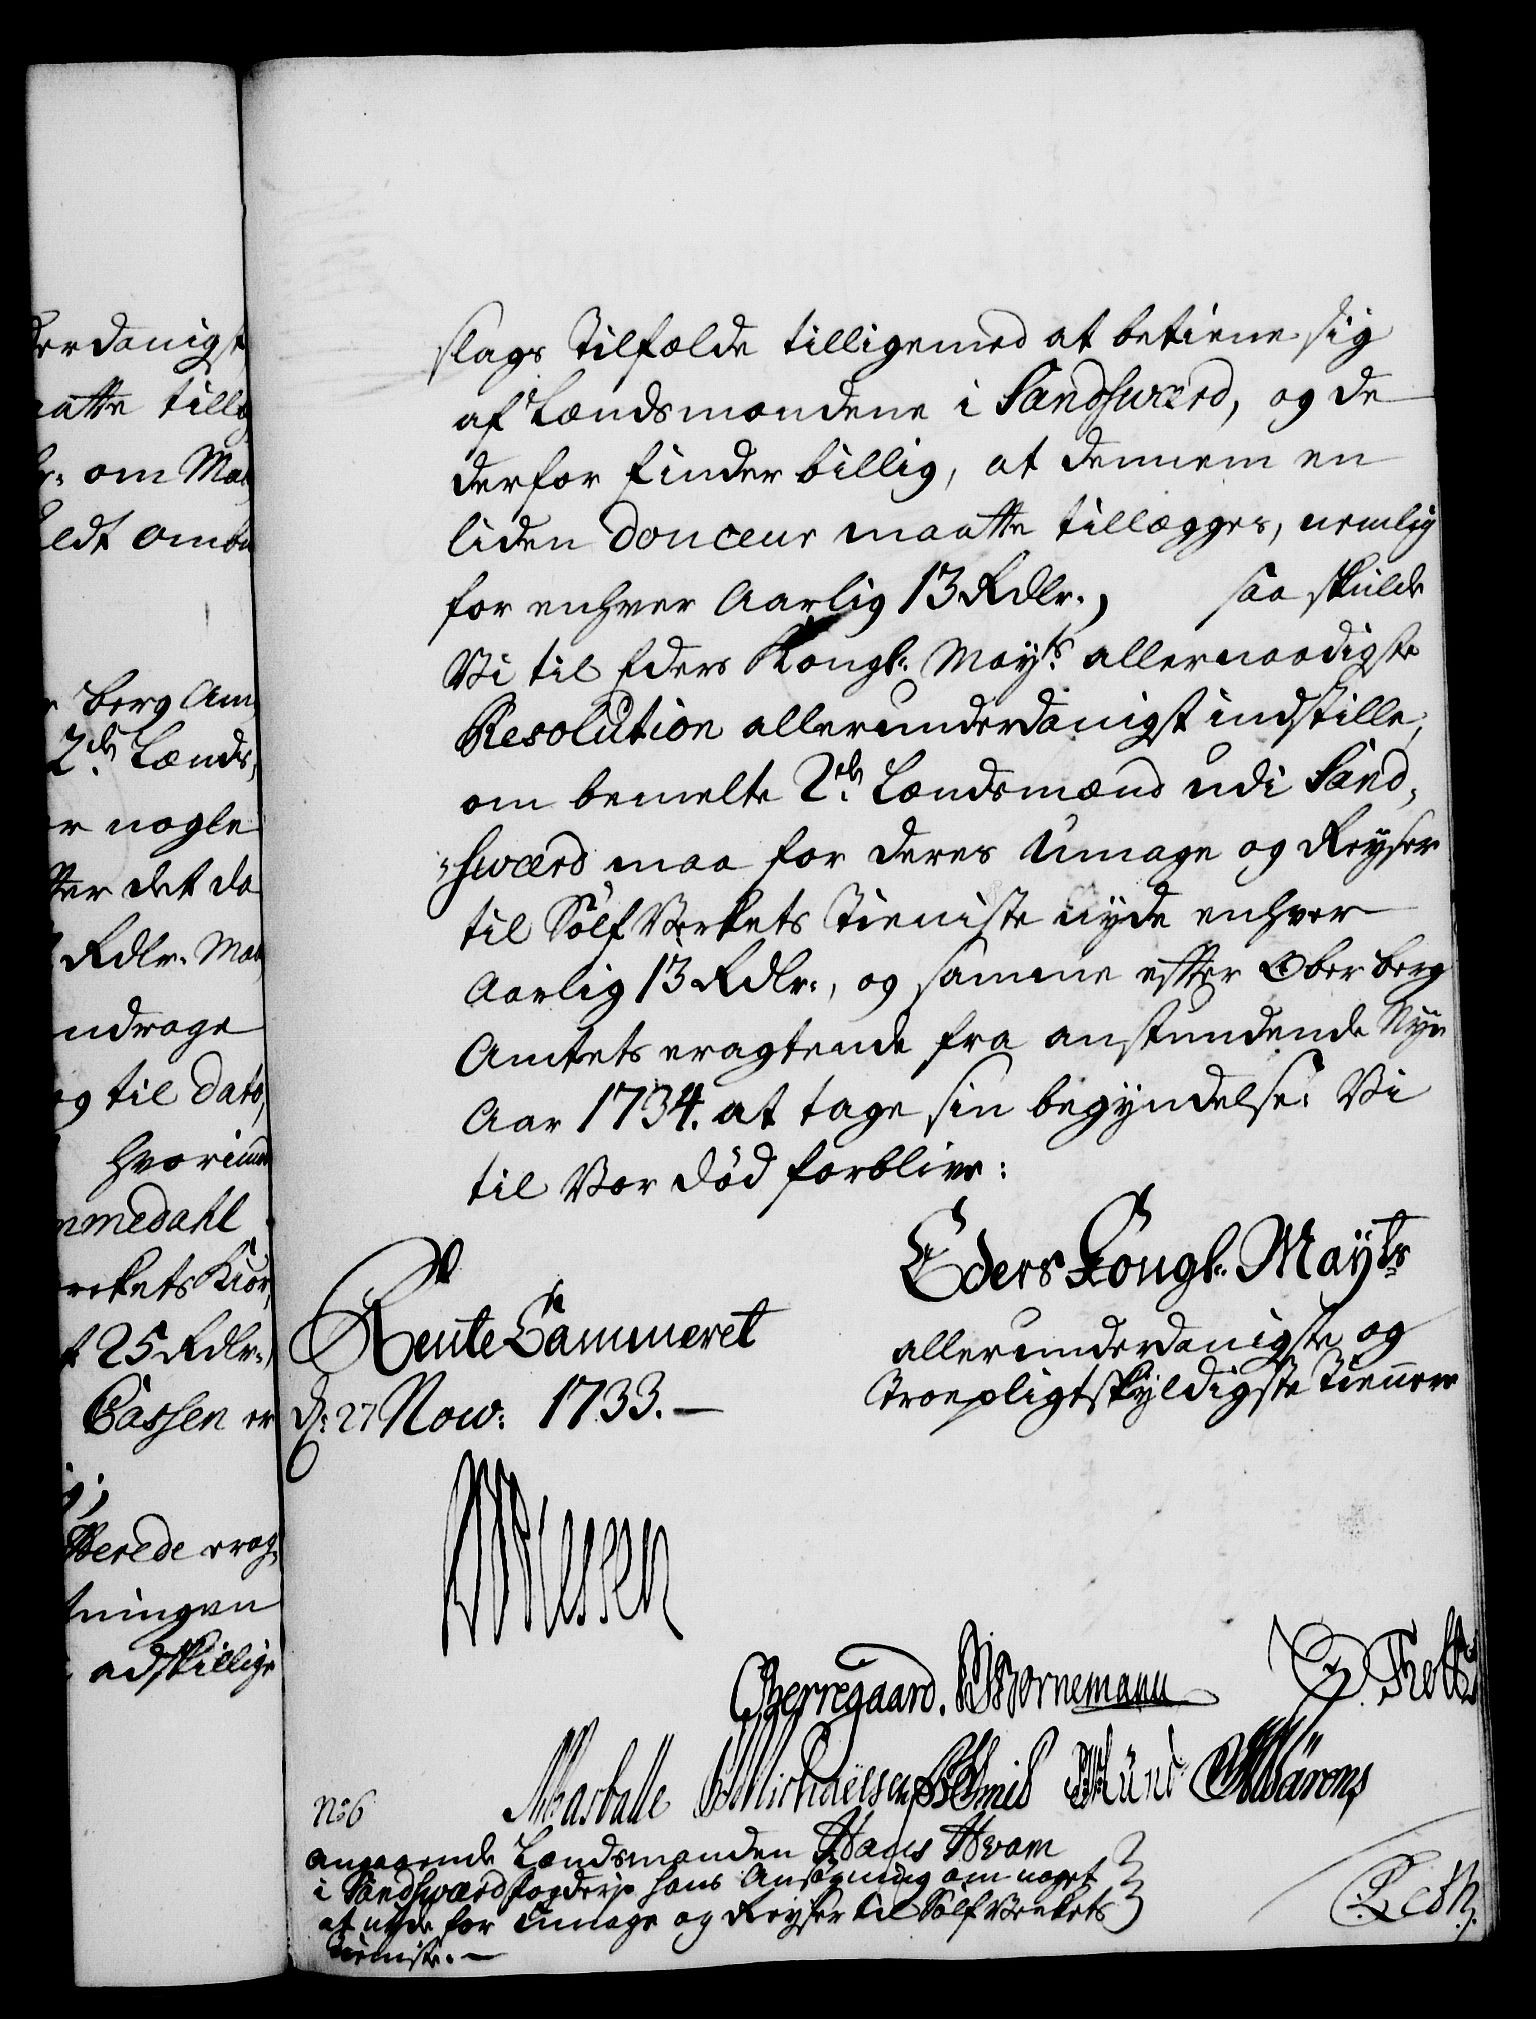 derdanigst
maatte tillæg
om Mat
berg Am
2de Lænds,
nogle
det da
Rdlr. Mat
ndrage
og til dato,
hvorimod
mmedahl
rckets Kiør,
25 Rdlr.,
Cassen er
erede erag,
tningen
adskillige
slags Tilfælde tilligemed at betiene sig
af Lændsmændene i Sandsværd, og de
derfor finder billig, at dennem en
liden Douceur maatte tillægges, nemlig
for enhver Aarlig 13 Rdlr., saa skulde
Vi til Eders Kongl. Mayts allernaadigste
Resolution allerunderdanigst indstille,
om bemelte 2de Lændsmænd udi Sand,
=sværd maa for deres Umage og Reyser
til Sølf Verkets Tieniste nyde enhver
Aarlig 13 Rdlr., og samme efter Ober berg
Amtets eragtende fra anstundende Nye
Aar 1734. at tage sin begyndelse. Vi
til Vor død forblive:
Eders Kongl. Mayts
allerunderdanigste og
Troepligtskyldigste Tiennere
Rente Cammeret
d. 27 Nov: 1733. —
Benzon
CBerregaard. Bornemann Tholt
Michaelsen Mund
No 6
angaaende Lændsmanden Hans Hvam
i Sandsværd fogderje hans Ansøgning om noget
at nyde for Umage og Reyser til Sølf Verkets
Tieniste. —